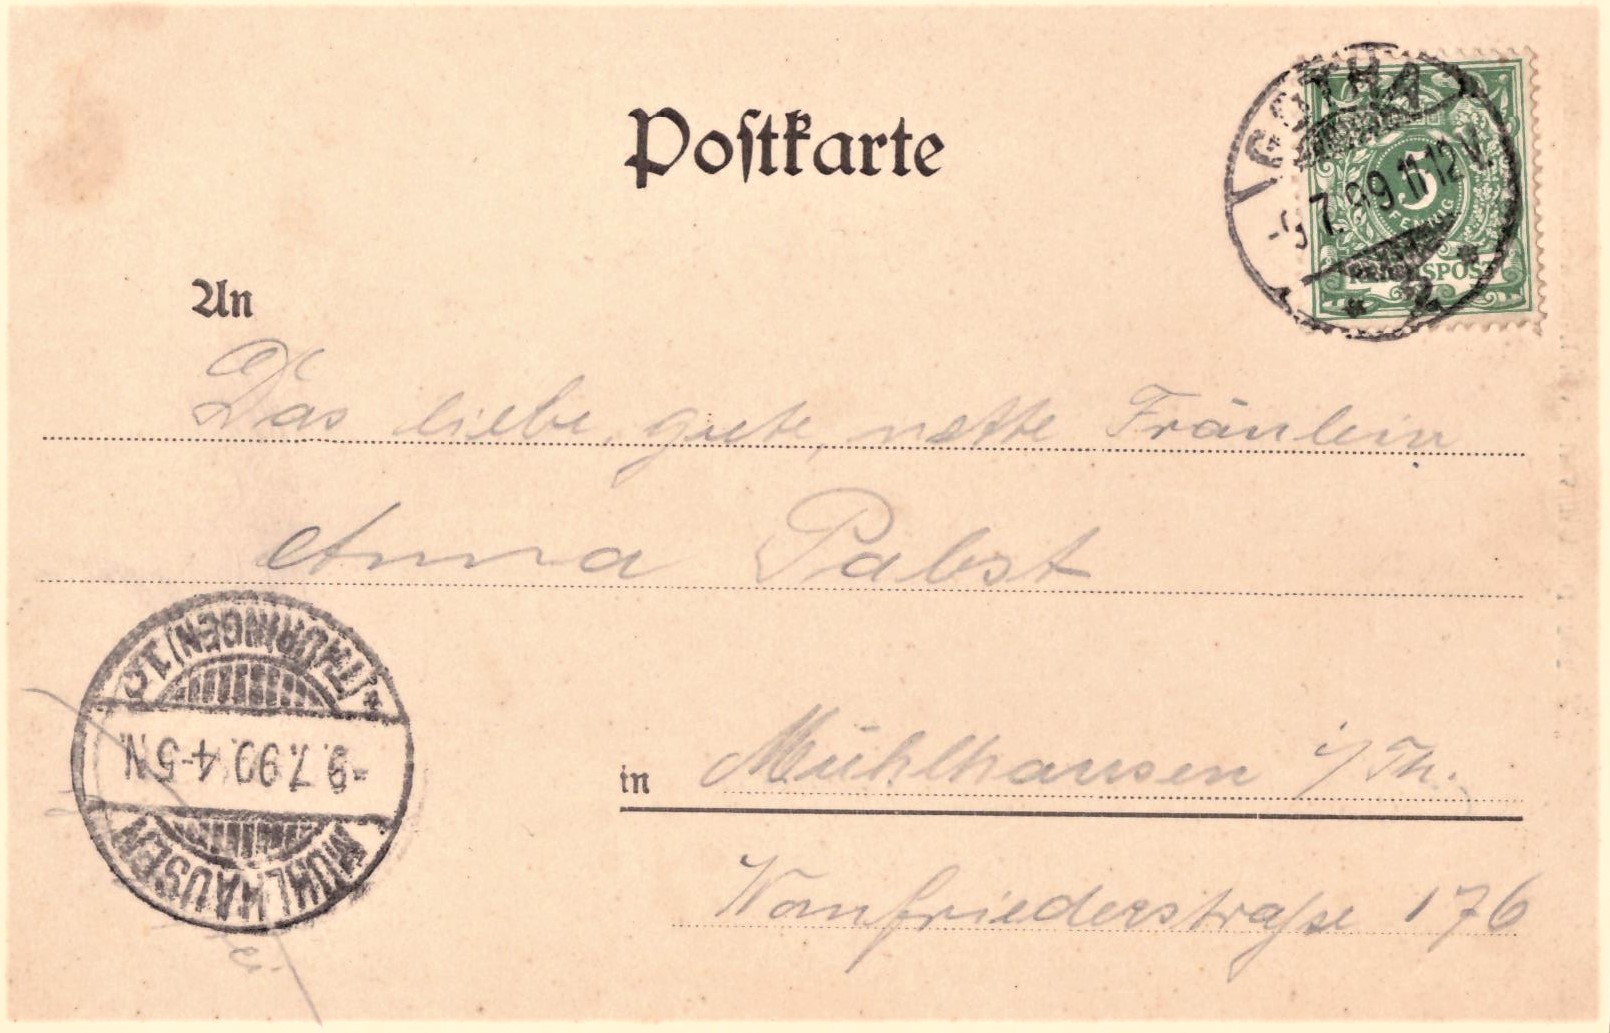 Postkarte
GOTHA
-9.7.99.11-12V.
* 2 *
5
PFENNIG
REICHSPOST
An
Das liebe, gute, nette Fräulein
Anna Pabst
in Mühlhausen i/Th.
Wanfriederstraße 176
MÜHLHAUSEN
-9.7.99. 4-5N.
* (THÜRINGEN) 1 c